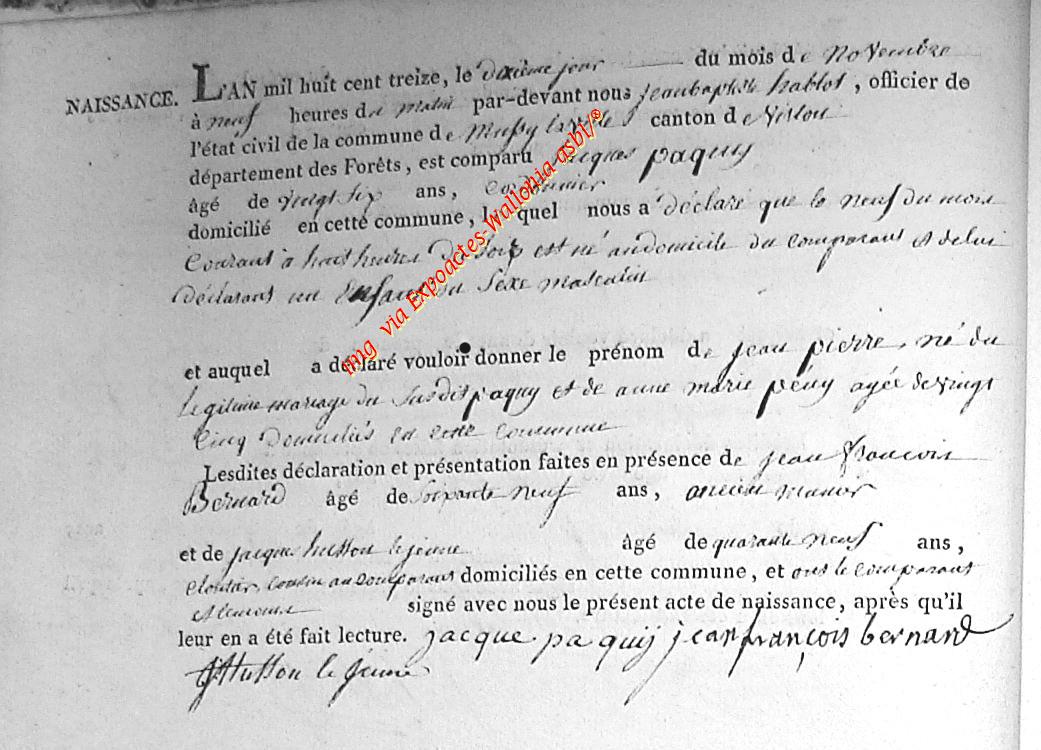 NAISSANCE. L'AN mil huit cent treize, le dixième jour du mois de Novembre
à neuf heures du matin par-devant nous jean baptiste hablot, officier de
l'état civil de la commune de Mussy la ville canton de Virton
département des Forêts, est comparu jacques paquy
âgé de vingt six ans, Cordonnier
domicilié en cette commune, lequel nous a déclaré que le neuf du mois
Courant à huit heures du soir est né au domicile du comparant et de lui
déclarant un enfant du sexe masculin
et auquel a déclaré vouloir donner le prénom de jean pierre, né du
legitime mariage du susdit paquy et de anne marie peny agée de vingt
Cinq Domiciliés en cette Commune
Lesdites déclaration et présentation faites en présence de jean françois
Bernard âgé de soixante neuf ans, ancien
et de jacques husson le jeune âgé de quarante neuf ans,
cloutier, cousin au comparant domiciliés en cette commune, et ont le comparant
et temoins signé avec nous le présent acte de naissance, après qu'il
leur en a été fait lecture. jacque paquy jean françois bernard
jHusson le jeune
img via Expoactes-Wallonia-asbl/®